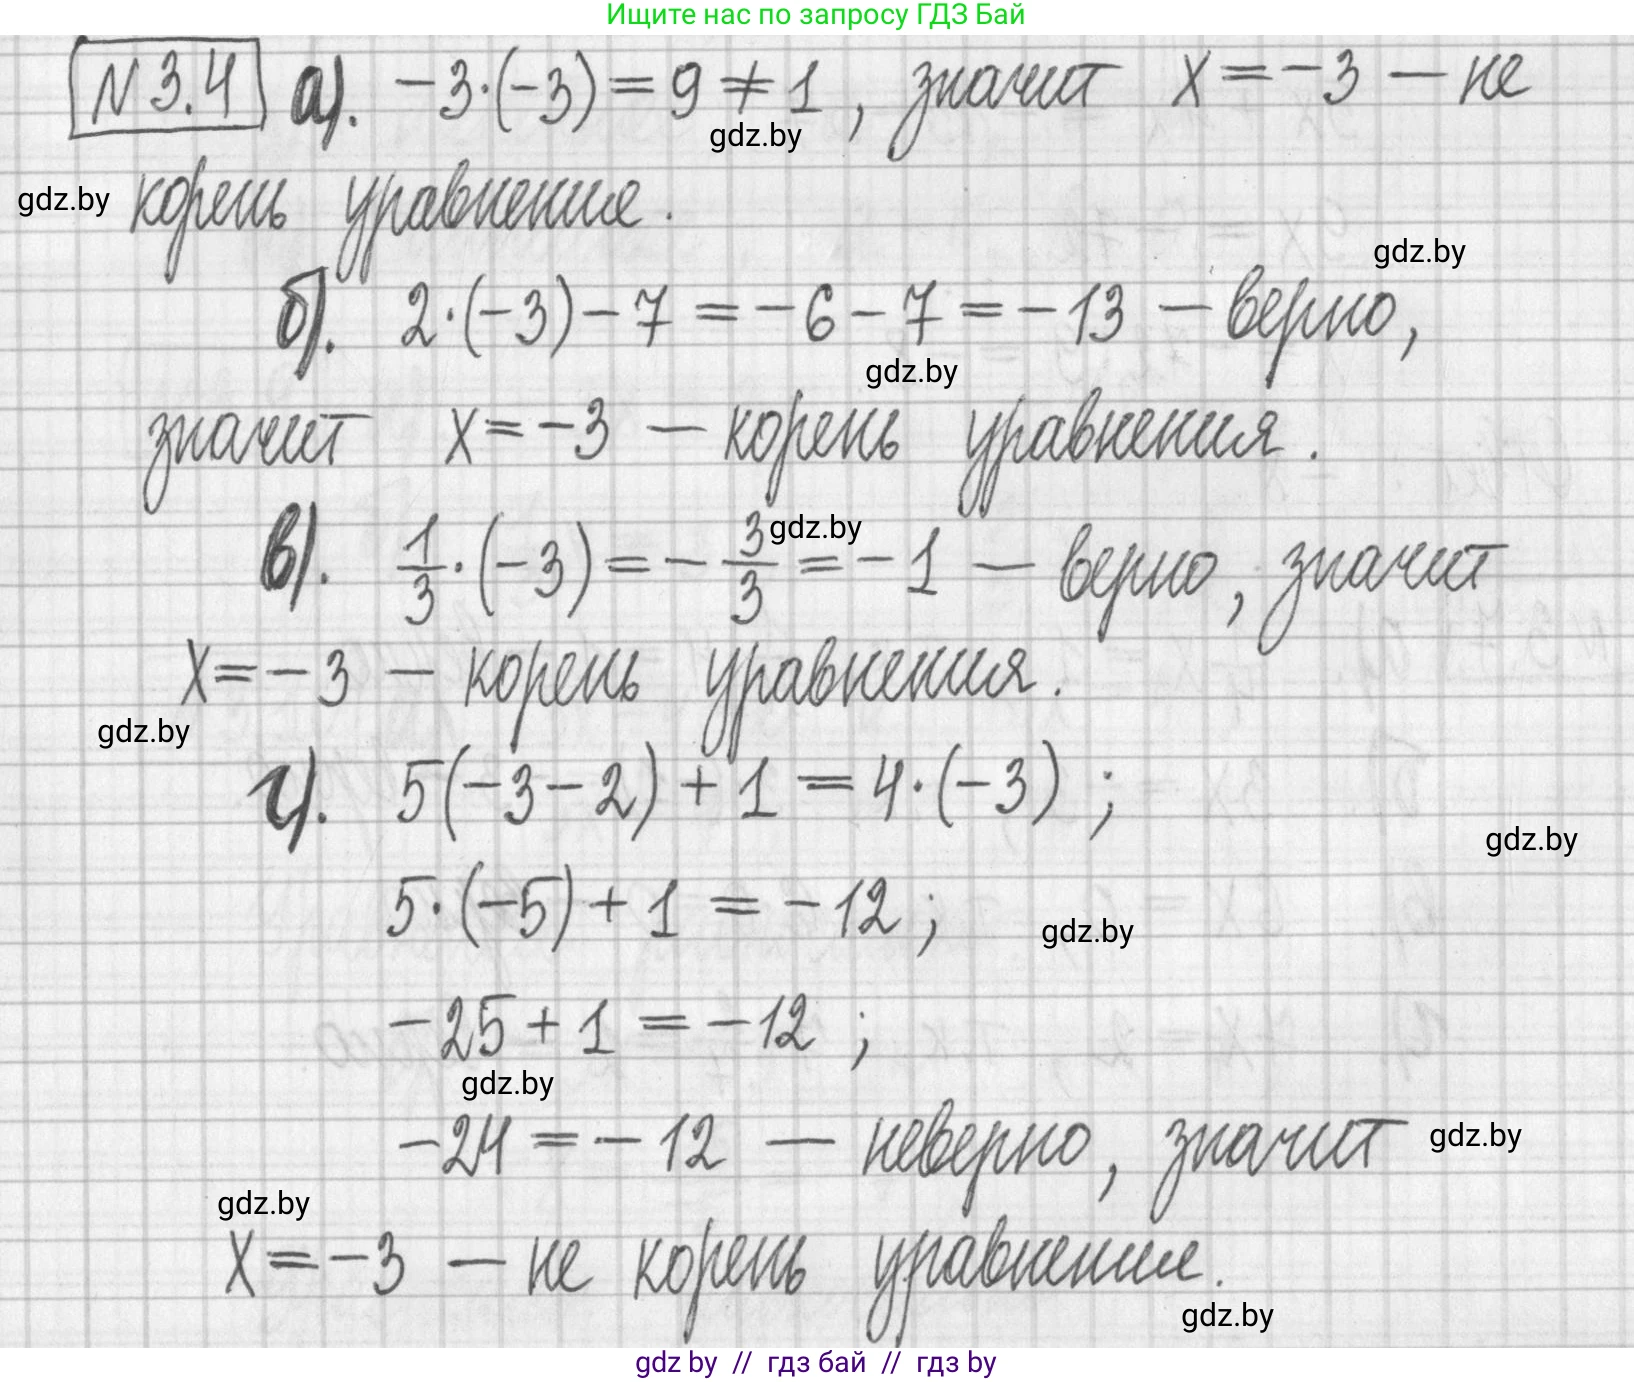 Ищите нас по запросу ГДЗ Бай
N 3.4 а). -3·(-3) = 9 ≠ 1, значит x = -3 — не
gdz.by
gdz.by корень уравнение.
gdz.by
б). 2·(-3) - 7 = -6 - 7 = -13 — верно,
gdz.by
значит x = -3 — корень уравнения.
gdz.by
в). 1/3·(-3) = -3/3 = -1 — верно, значит
x = -3 — корень уравнения.
gdz.by
г). 5(-3-2) + 1 = 4·(-3) ;
gdz.by
5·(-5) + 1 = -12 ;
gdz.by
-25 + 1 = -12 ;
gdz.by
-24 = -12 — неверно, значит
gdz.by
gdz.by
x = -3 — не корень уравнение.
gdz.by
gdz by // гдз бай // гдз by